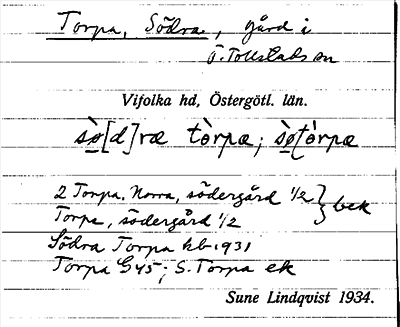 Torpa, Södra, gård i
V. Tollstads sn
Vifolka hd, Östergötl. län.
sø̀[d]ræ tòrpæ; sø̀tórpæ
2 Torpa, Norra, södergård 1/2 } bek
Torpa, södergård 1/2
Södra Torpa kb 1931
Torpa G45; S. Torpa ek
Sune Lindqvist 1934.